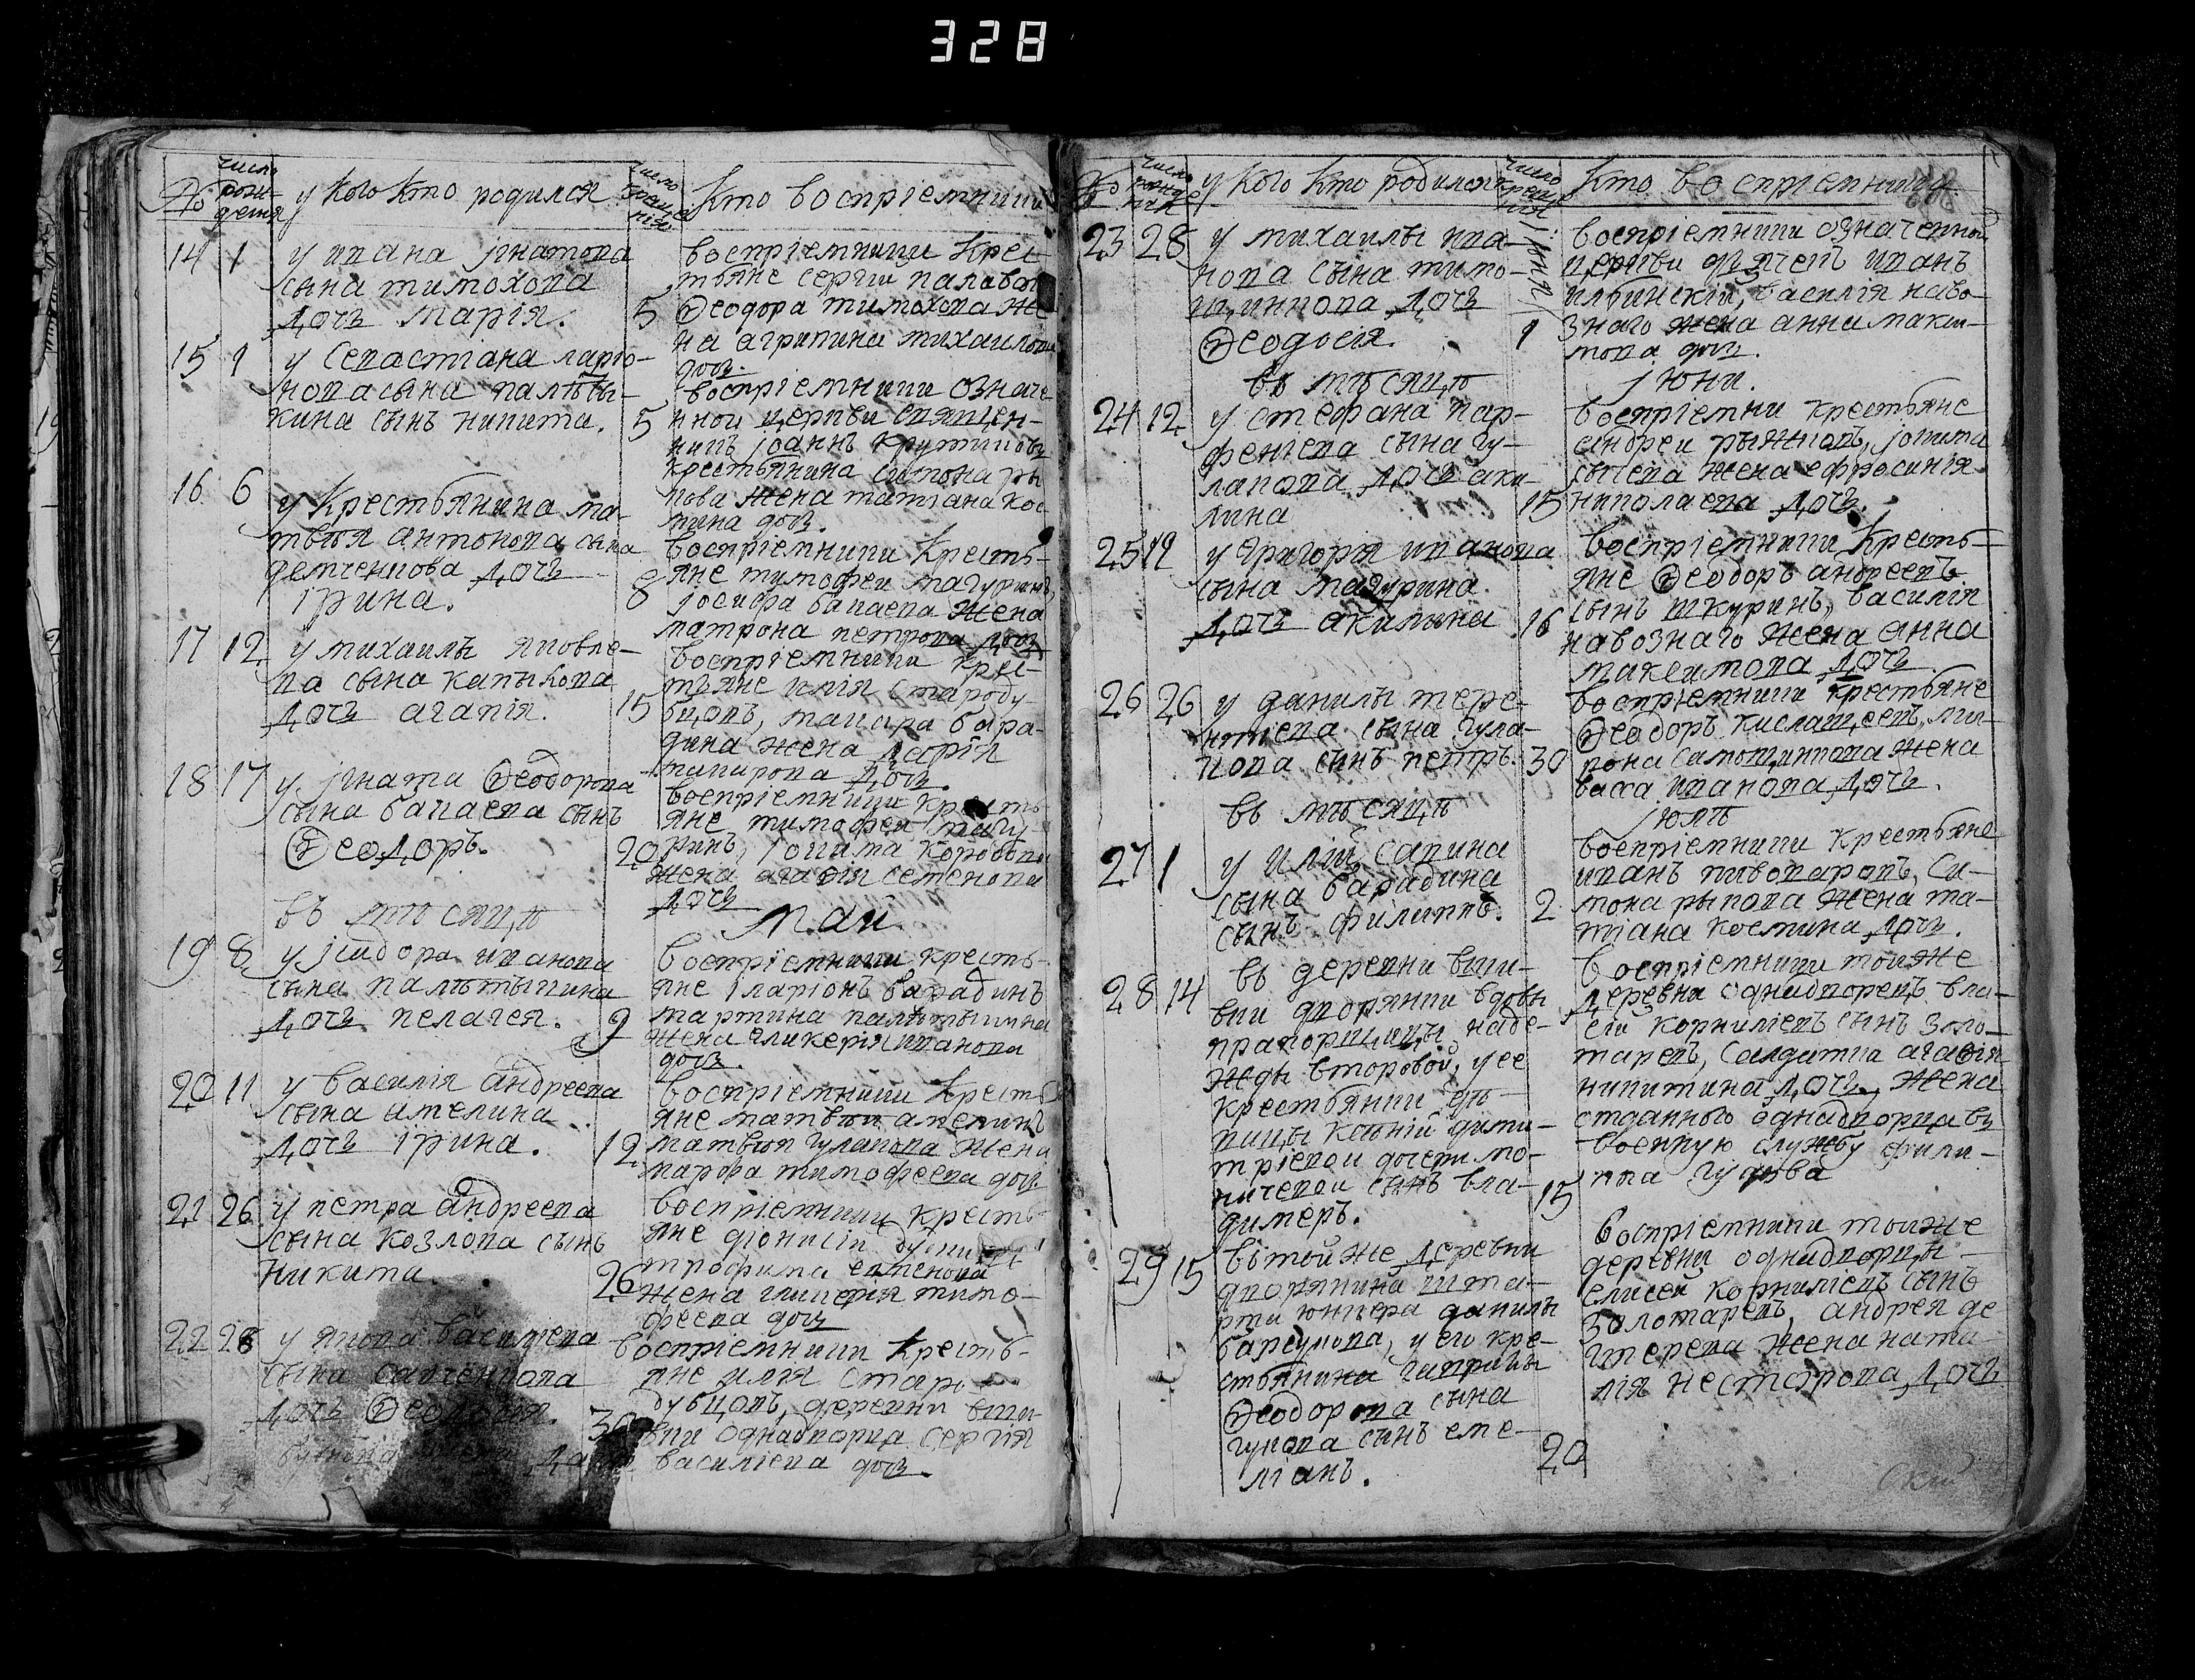 328
№
число рождения
у кого кто родился
число крещенія
кто воспріемники
14 1
у ивана игнатова
сына тимохова
дочь марія.
5
воспріемники крес-
тьяне сергіи
Ѳеодора тимохова же
на агрипина михаилова
дочь.
15 1
у севастіана ларіо-
нова сына
кина сынъ никита.
5
воспріемники означе
нной церкви священ-
никъ іоаннъ
крестьянина симона ры
кова жена татіана кос
мина дочь.
16 6
у крестьянина ма-
твѣя антонова сына
демченкова дочь
ірина.
8
воспріемники кресть-
яне тимофеи магуринъ,
іосифа бакаева жена
матрона петрова дочь
17 12
у михаилы яковле-
ва сына капыкова
дочь агапія.
15
воспріемники кре-
стьяне илія староду-
бцовъ, макара бара-
дина жена дарія
макарова дочь.
18 17
у игната Ѳеодорова
сына бакаева сынъ
Ѳеодоръ.
20
воспріемники кресть
яне тимофеи магу
ринъ, іоакима коробова
жена агафія семенова
дочь
въ мѣсяцѣ май
19 8
у ісидора иванова
сына палѣтыкина
дочь пелагея.
9
воспріемники кресть-
яне іларіонъ барадинъ
мартина палѣтыкина
жена гликерія иванова
дочь.
20 11
у василія андреева
сына амелина
дочь ірина.
12
воспріемники кресть
яне матвѣи амелинъ
матвѣя гулакова жена
марфа тимофеева дочь
21 26
у петра андреева
сына козлова сынъ
никита
26
воспріемники кресть-
яне діонисіи
трофима семенова
жена гликерія тимо-
феева дочь
22 28
у якова василіева
сына савченкова
дочь Ѳеодосія.
30
воспріемники кресть-
яне илія старо-
дубцовъ, деревни
вки однадворца сергія
василіева дочь.
№
число рожденія
у кого кто родился
число крещенія
кто воспріемники
23 28
у михаилы ива-
нова сына тимо-
шинкова дочь
Ѳеодосія.
іюня
1
воспріемники означенной
церкви дьячекъ иванъ
ильинскій, василія наво-
знаго жена анна макси-
мова дочь.
въ мѣсяцѣ іюни.
24 12
у стефана пар-
фенiева сына гу-
лакова дочь аки-
лина
15
воспріемни крестьяне
андреи рыжковъ, іоакима
сычева жена ефросинія
николаева дочь.
25 14
у григорія иванова
сына магурина
дочь акилина
16
воспріемники кресть-
яне Ѳеодоръ андреевъ
сынъ шкуринъ, василія
навознаго жена анна
максимова дочь
26 26
у данилы тере-
нтіева сына гула-
кова сынъ петръ.
30
воспріемники крестьяне
Ѳеодоръ кислащеевъ, ми-
рона самошинкова жена
васса иванова дочь.
въ мѣсяцѣ іюлѣ
27 1
у иліи савина
сына барадина
сынъ филиппъ.
2
воспріемники крестьяне
иванъ пивоваровъ, си-
мона рыкова жена та-
тіана космина дочь.
28 14
въ деревни
вки дворянки вдовы
прапорщицы наде-
жды второвой, у ее
крестьянки дѣ-
вицы ксѣніи дими-
тріевои дочери мо-
ничевои сынъ вла-
димеръ.
15
воспріемники тойже
деревни однадворецъ вла-
сiи корниліевъ сынъ золо-
таревъ, салдатка агафія
никитина дочь, жена
отданнаго однадворца въ
военную службу фили-
ппа гу
29 15
въ той же деревни
дворянина шта-
рти юнкера данилы
барсукова, у его кре-
стьянина гаврилы
Ѳеодорова сына
гункова сынъ еме-
ліанъ.
20
воспріемники тойже
деревни однадворцы
елисей корниліевъ сынъ
золотаревъ, андрея де
гтерева жена ната-
лія несторова дочь